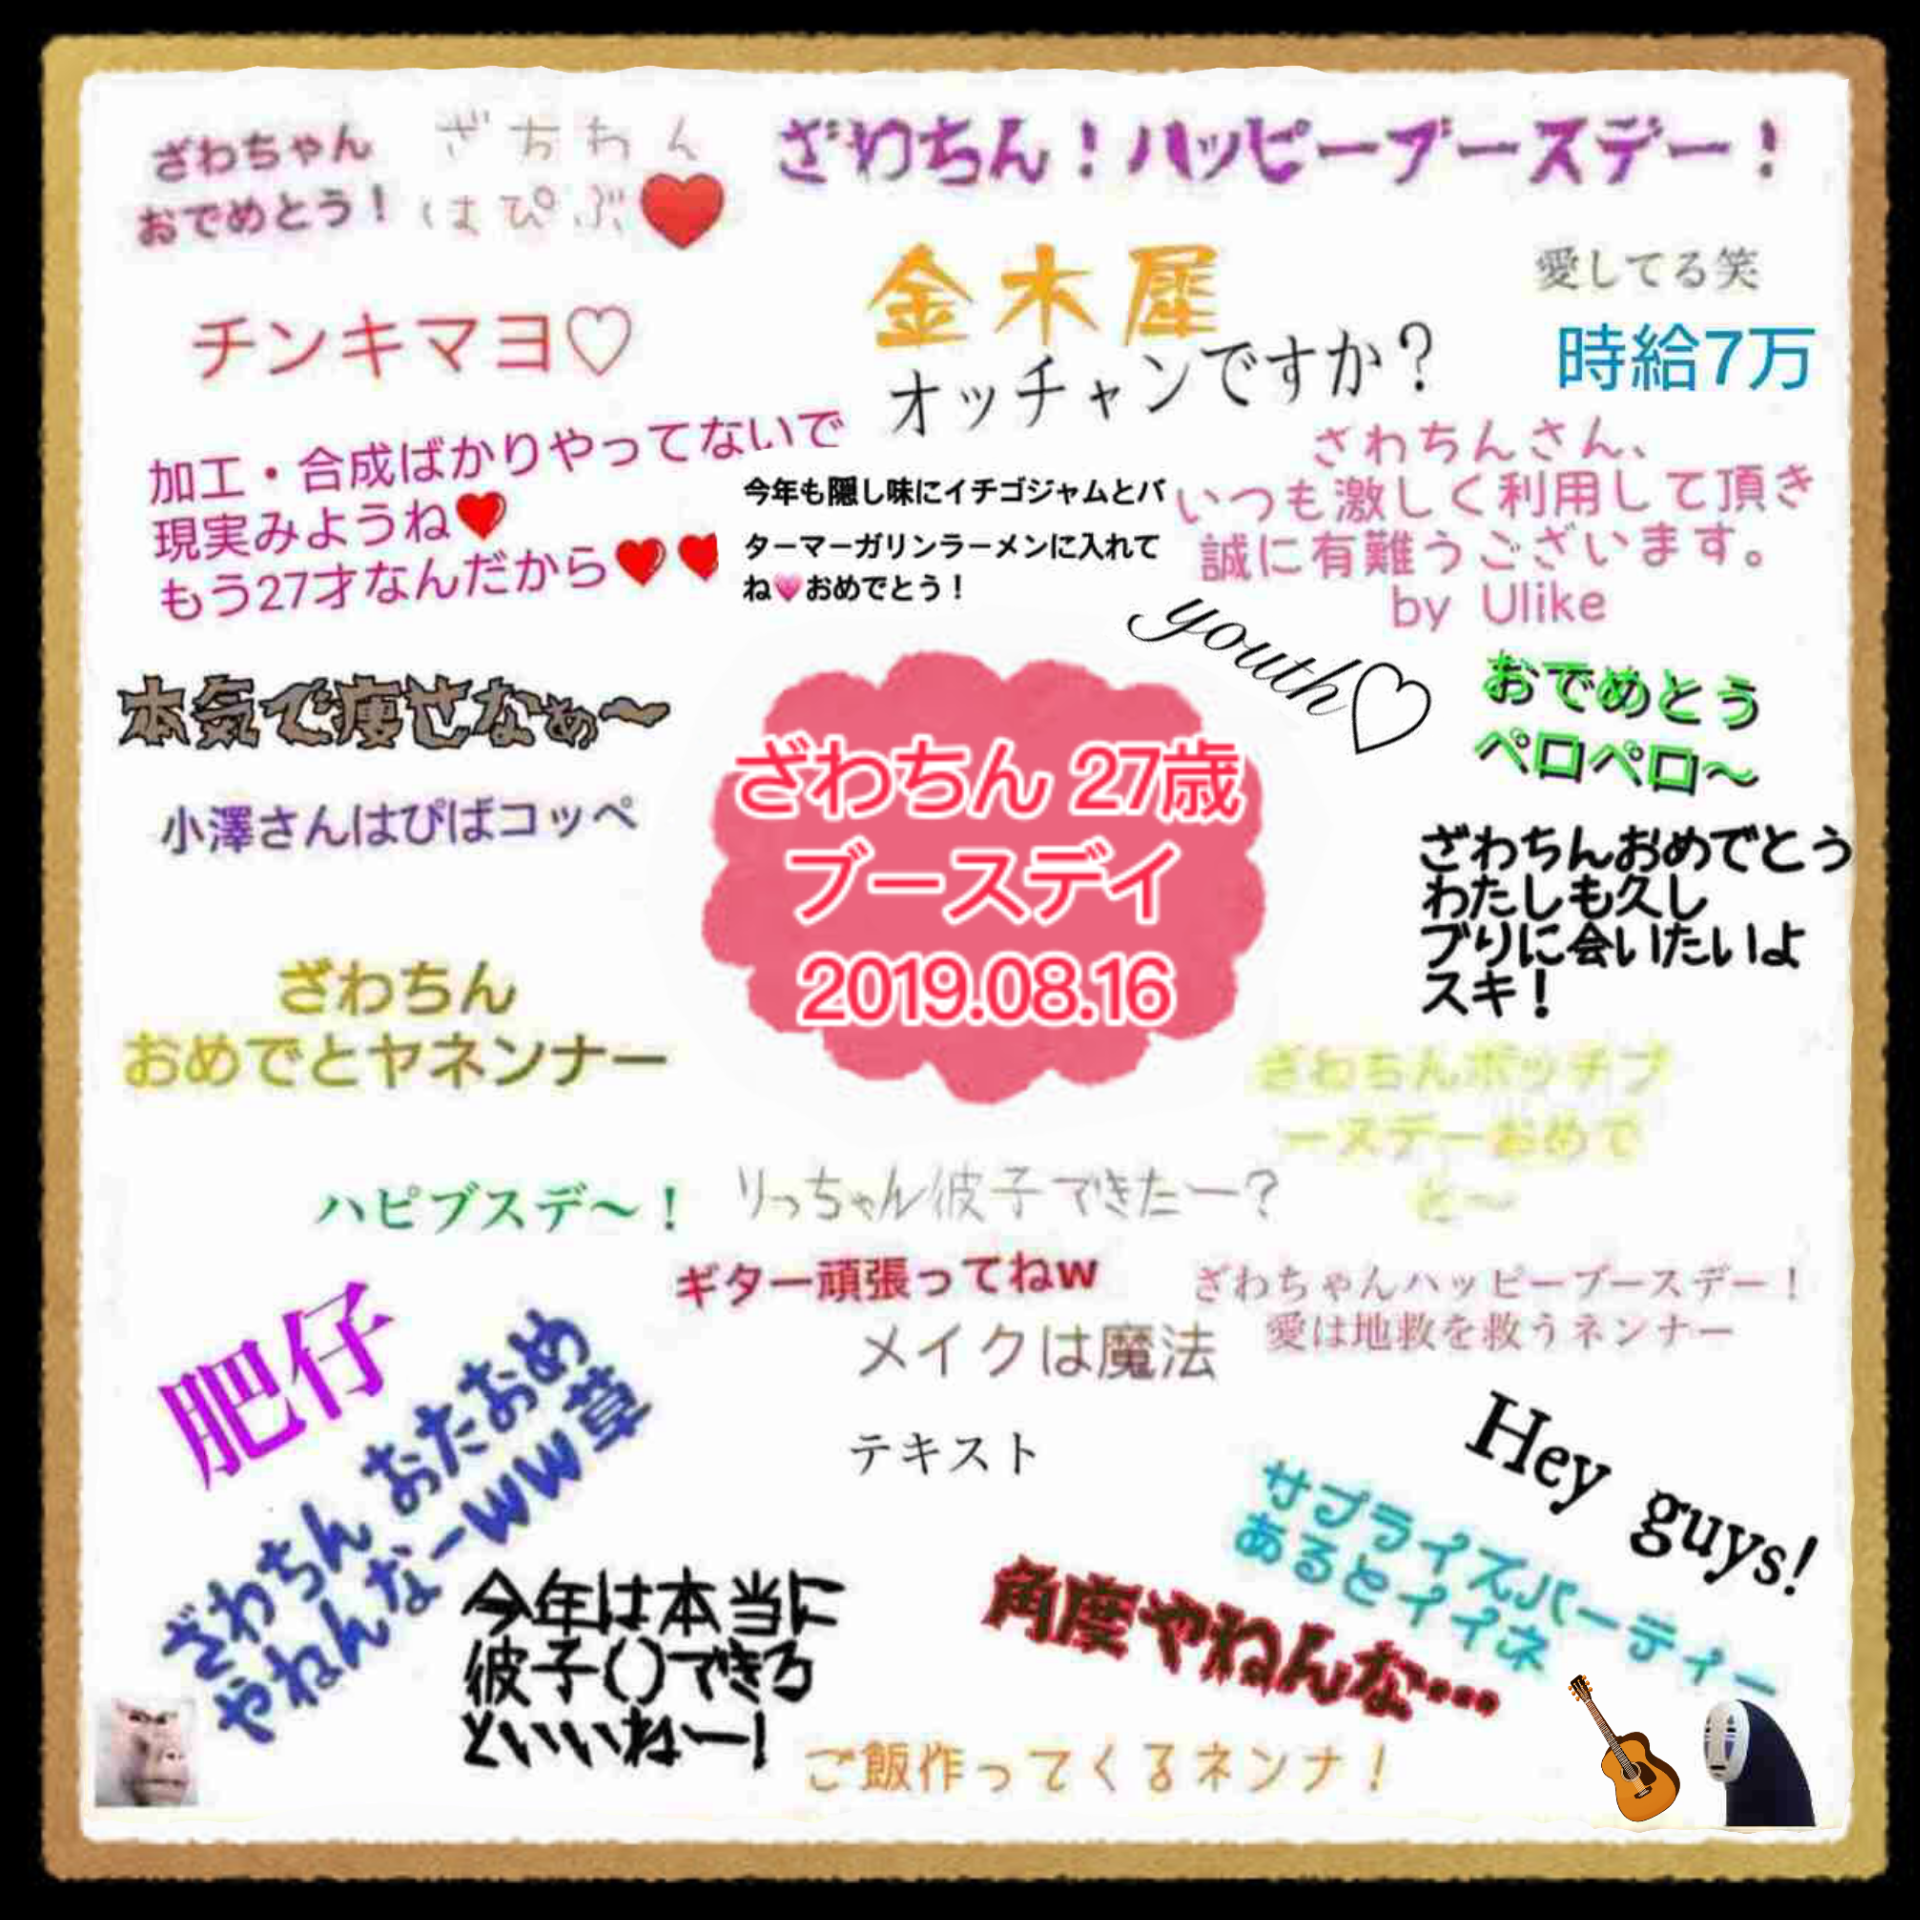 ざわちゃん
おでめとう！
ざちわん
はぴぶ❤
ざわちん！ハッピーブースデー！
金木犀
オッチャンですか？
愛してる笑
時給7万
チンキマヨ♡
加工・合成ばかりやってないで
現実みようね❤
もう27才なんだから❤❤
今年も隠し味にイチゴジャムとバ
ターマーガリンラーメンに入れて
ね💗おめでとう！
ざわちんさん、
いつも激しく利用して頂き
誠に有難うございます。
by Ulike
youth♡
本気で痩せなぁ〜
おでめとう
ペロペロ〜
ざわちん 27歳
ブースデイ
2019.08.16
小澤さんはぴばコッペ
ざわちんおめでとう
わたしも久し
ブりに会いたいよ
スキ！
ざわちん
おめでとヤネンナー
ざわちんボッチブ
ースデーおめで
と〜
ハピブスデ〜！
りっちゃん彼子できたー？
ギター頑張ってねw
メイクは魔法
ざわちゃんハッピーブースデー！
愛は地救を救うネンナー
肥仔
ざわちん おたおめ
やねんなーww草
テキスト
Hey guys!
サプライズパーティー
あるとイイネ
角度やねんな…
今年は本当に
彼子()できろ
といいねー！
ご飯作ってくるネンナ！